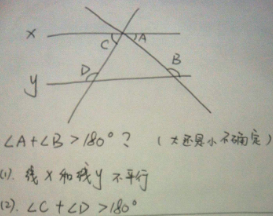 x
C
A
D
B
y
∠A+∠B>180°? (大还是小不确定)
(1). 线x和线y不平行
(2). ∠C+∠D>180°